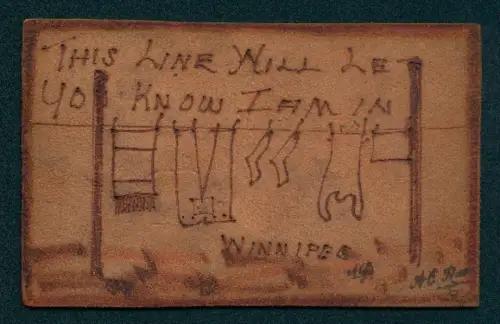 THIS LINE WILL LET
YOU KNOW I AM IN
WINNIPEG